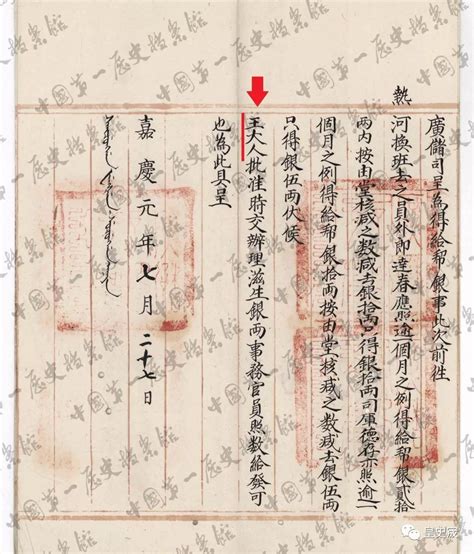 廣儲司呈為得給幫銀事此次前徃
熱河換班去之員外郎達春應照逾二個月之例得給幫銀貳拾
兩内按由堂核减之數减去銀拾兩只得銀拾兩司庫德存亦照逾一
個月之例得給幫銀拾兩按由堂核减之數减去銀伍兩
只得銀伍兩伏候
王大人批准時交辦理滋生銀兩事務官員照數給發可
也為此具呈
嘉慶元年七月二十七日
中國第一歷史檔案館
皇史宬